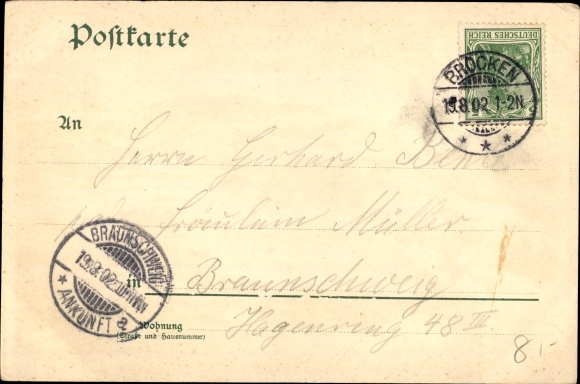 Postkarte
DEUTSCHES REICH
BROCKEN
19.8.02 1-2N
An
Herrn Gerhard
Fräulein Müller
BRAUNSCHWEIG
19.8.02
ANKUNFT
in Braunschweig
Wohnung
(Straße und Hausnummer)
Hagenring 48 IV
8.-